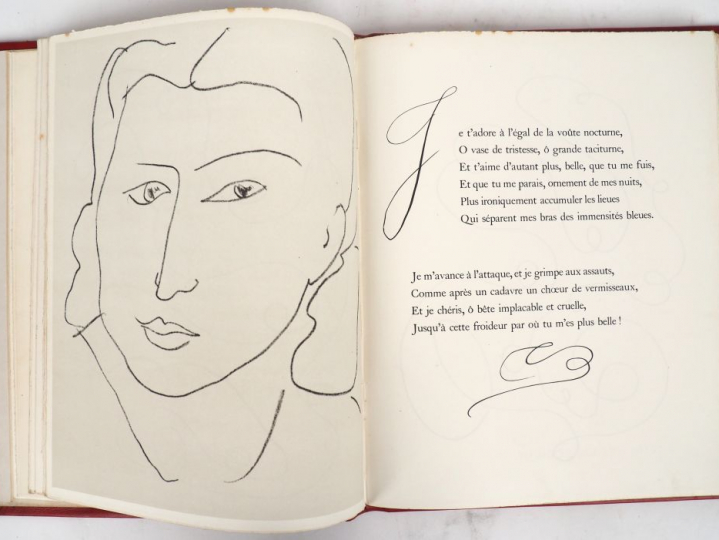 Je t'adore à l'égal de la voûte nocturne,
O vase de tristesse, ô grande taciturne,
Et t'aime d'autant plus, belle, que tu me fuis,
Et que tu me parais, ornement de mes nuits,
Plus ironiquement accumuler les lieues
Qui séparent mes bras des immensités bleues.
Je m'avance à l'attaque, et je grimpe aux assauts,
Comme après un cadavre un chœur de vermisseaux,
Et je chéris, ô bête implacable et cruelle,
Jusqu'à cette froideur par où tu m'es plus belle !